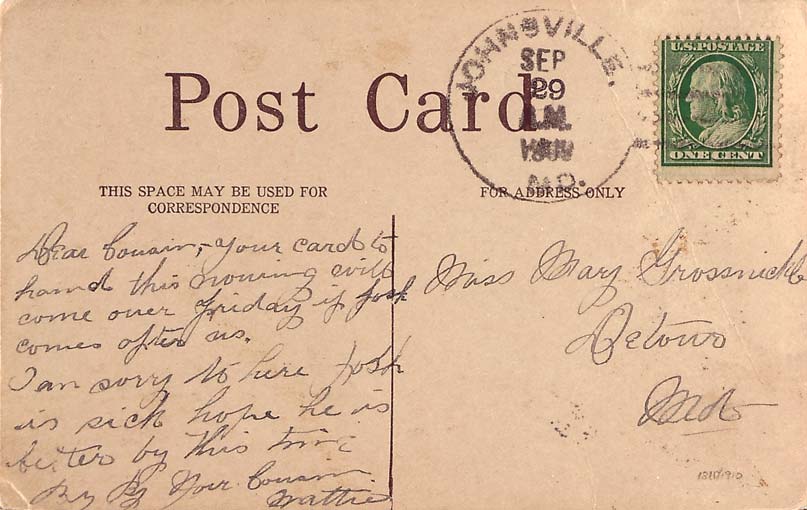 Post Card
JOHNSVILLE,
SEP
29
A.M.
1909
MD.
U.S. POSTAGE
ONE CENT
THIS SPACE MAY BE USED FOR
CORRESPONDENCE
FOR ADDRESS ONLY
Dear Cousin, - Your card to
hand this moring will
come over Friday if Josh
comes after us.
I am sorry to here Josh
is sick hope he is
better by this time
By By Your Cousin
Mattie
Miss Mary Grossnickle
Detour
Md